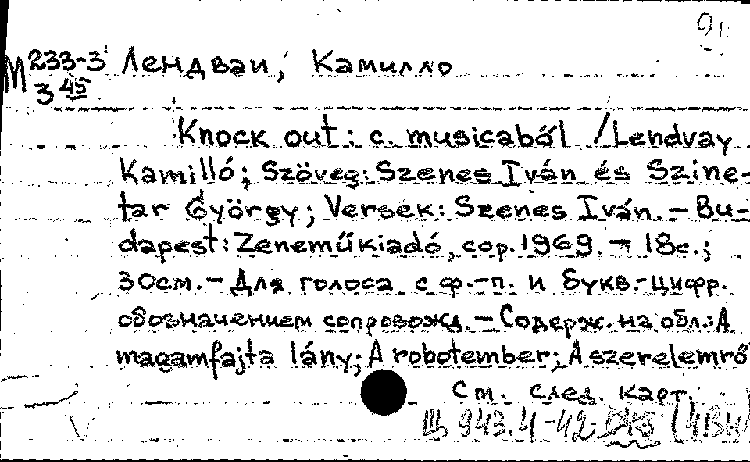 9
М 233-3 Лендваи, Камилло
3 45
Knock out: c. musicaból / Lendvay
Kamilló; Szöveg: Szenes Iván és Szine-
tar György; Versek: Szenes Iván. – Bu-
dapest: Zeneműkiadó, cop. 1969. – 18с.;
30см. – Для голоса с ф.-п. и букв.-цифр.
обозначением сопровожд. – Содерж. на обл.: A
magamfajta lány; A robotember; A szerelemrő
См. след. карт.
Щ 943.4-42